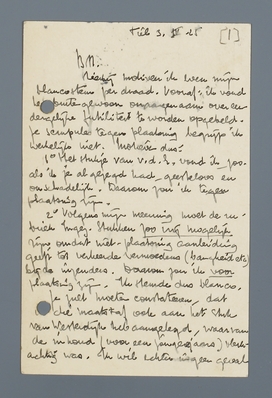 Tiel 3. IV 21 [1]
B.N.!
motiveer ik even mijn
blanco stem per draad. Vooraf: ik vond
het buitengewoon onaangenaam over een
dergelijke futiliteit te worden opgebeld.
Je scrupule tegen plaatsing begrijp ik
werkelijk niet. Motieven dus:
1° Het stukje van v. d. B. vond ik, zoo-
als ik je al gezegd had, geesteloos en
onschadelijk. Daarom ben ik tegen
plaatsing
2° Volgens mijn meening moet de ru-
briek Ingez. Stukken zoo vrij mogelijk
zijn omdat niet-plaatsing aanleiding
geeft tot verkeerde vermoedens (bangheid etc)
bij de inzenders. Daarom ben ik voor
plaatsing Ik stemde dus blanco.
Je zult moeten constateeren, dat
die maatstaf ook aan het stuk
van Westerdijk heb aangelegd, waarvan
de inhoud (voor een
was. Ik wil echter in geen geval